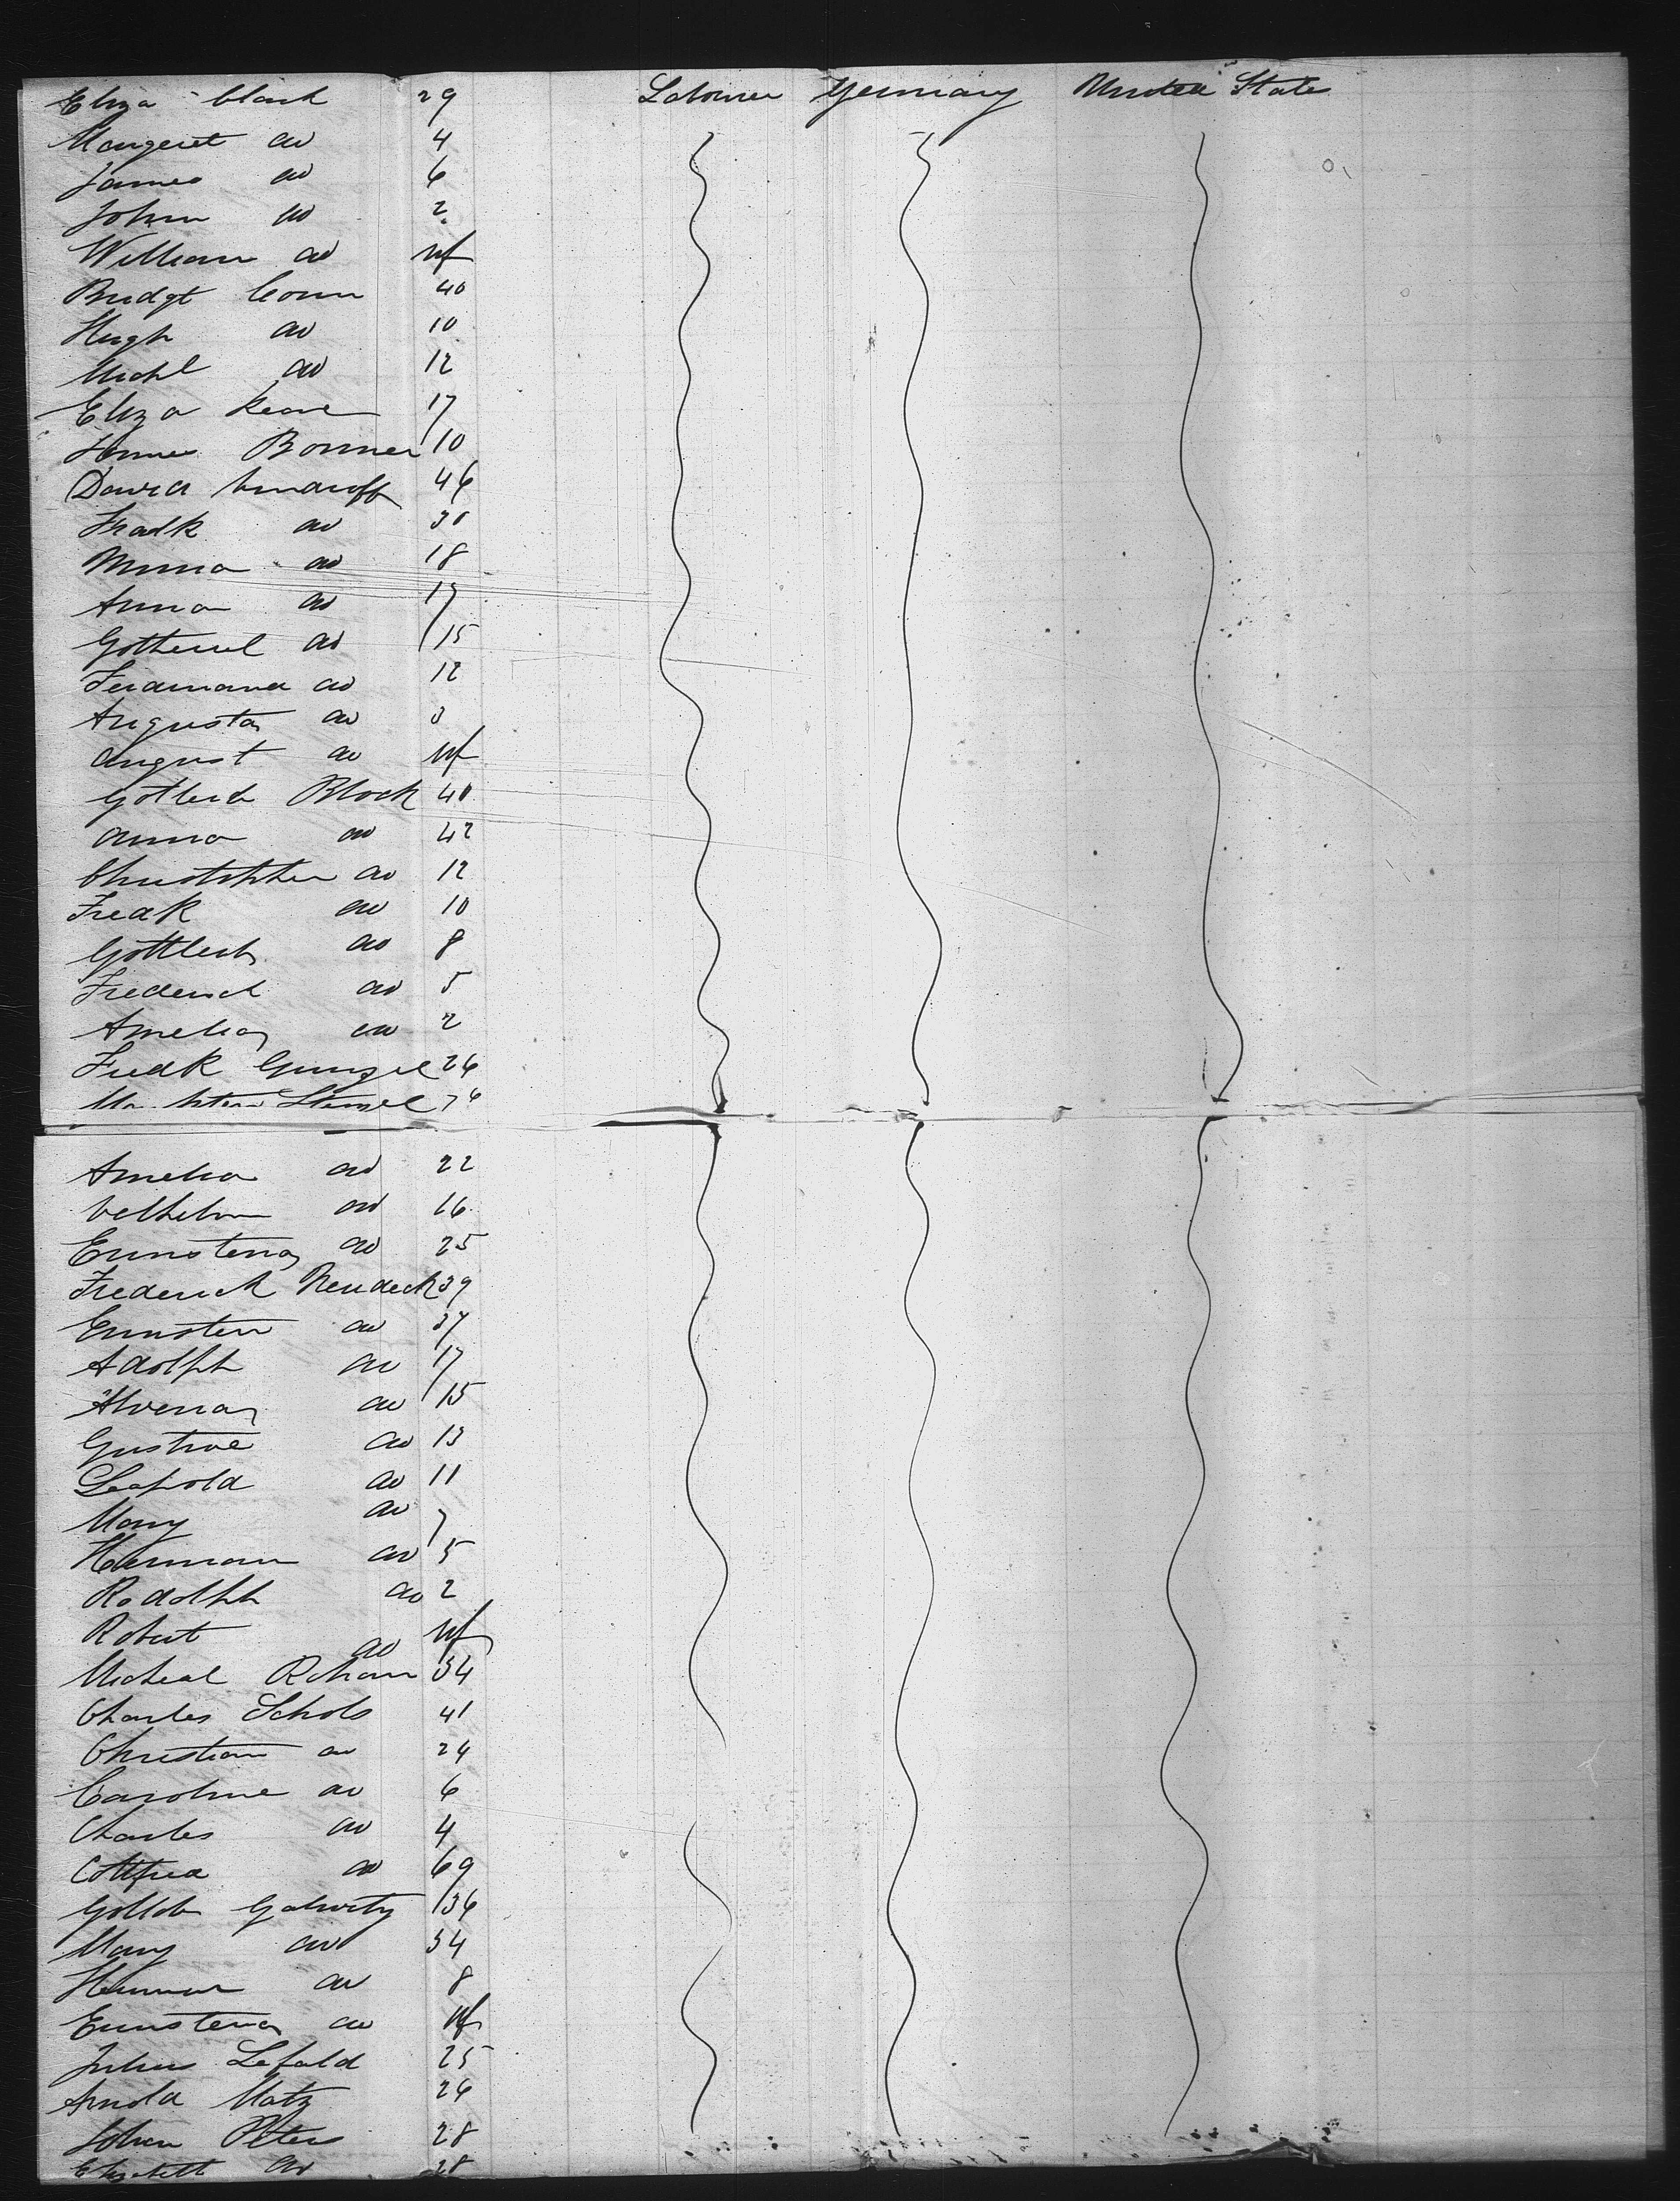 Eliza Clark 29 Laborer Germany United States
Margeret do 4
James do 6
John do 2
William do Inf
Bridgt Conn 40
Hugh do 10
Michl do 12
Eliza Keane 17
James Bonner 10
David 46
Fradk do 30
Minna do 18
Anna do 17
do 15
Ferdinand do 12
Augusta do 3
August do Inf
Gotleib Block 40
Anna do 42
Christopher do 12
Fredk do 10
Gottleib do 8
Frederick do 5
Amelia do 2
Fredk 26
Stengel
Amelia do 22
Velhelm do 16
Ernstena do 25
Frederick Neudeck 39
Ernsten do 37
Adolph do 17
Alvena do 15
Gustave do 13
Leopold do 11
Mary do 7
Herman do 5
Rodolph do 2
Robert do Inf
Micheal 34
Charles Schols 41
Christian do 24
Caroline do 6
Charles do 4
Cottfried do 69
Gottlob 36
Mary do 34
Herman do 8
Ernstena do Inf
Julius Lefald 25
Arnold Matz 26
John Peters 28
Elizabeth do 28